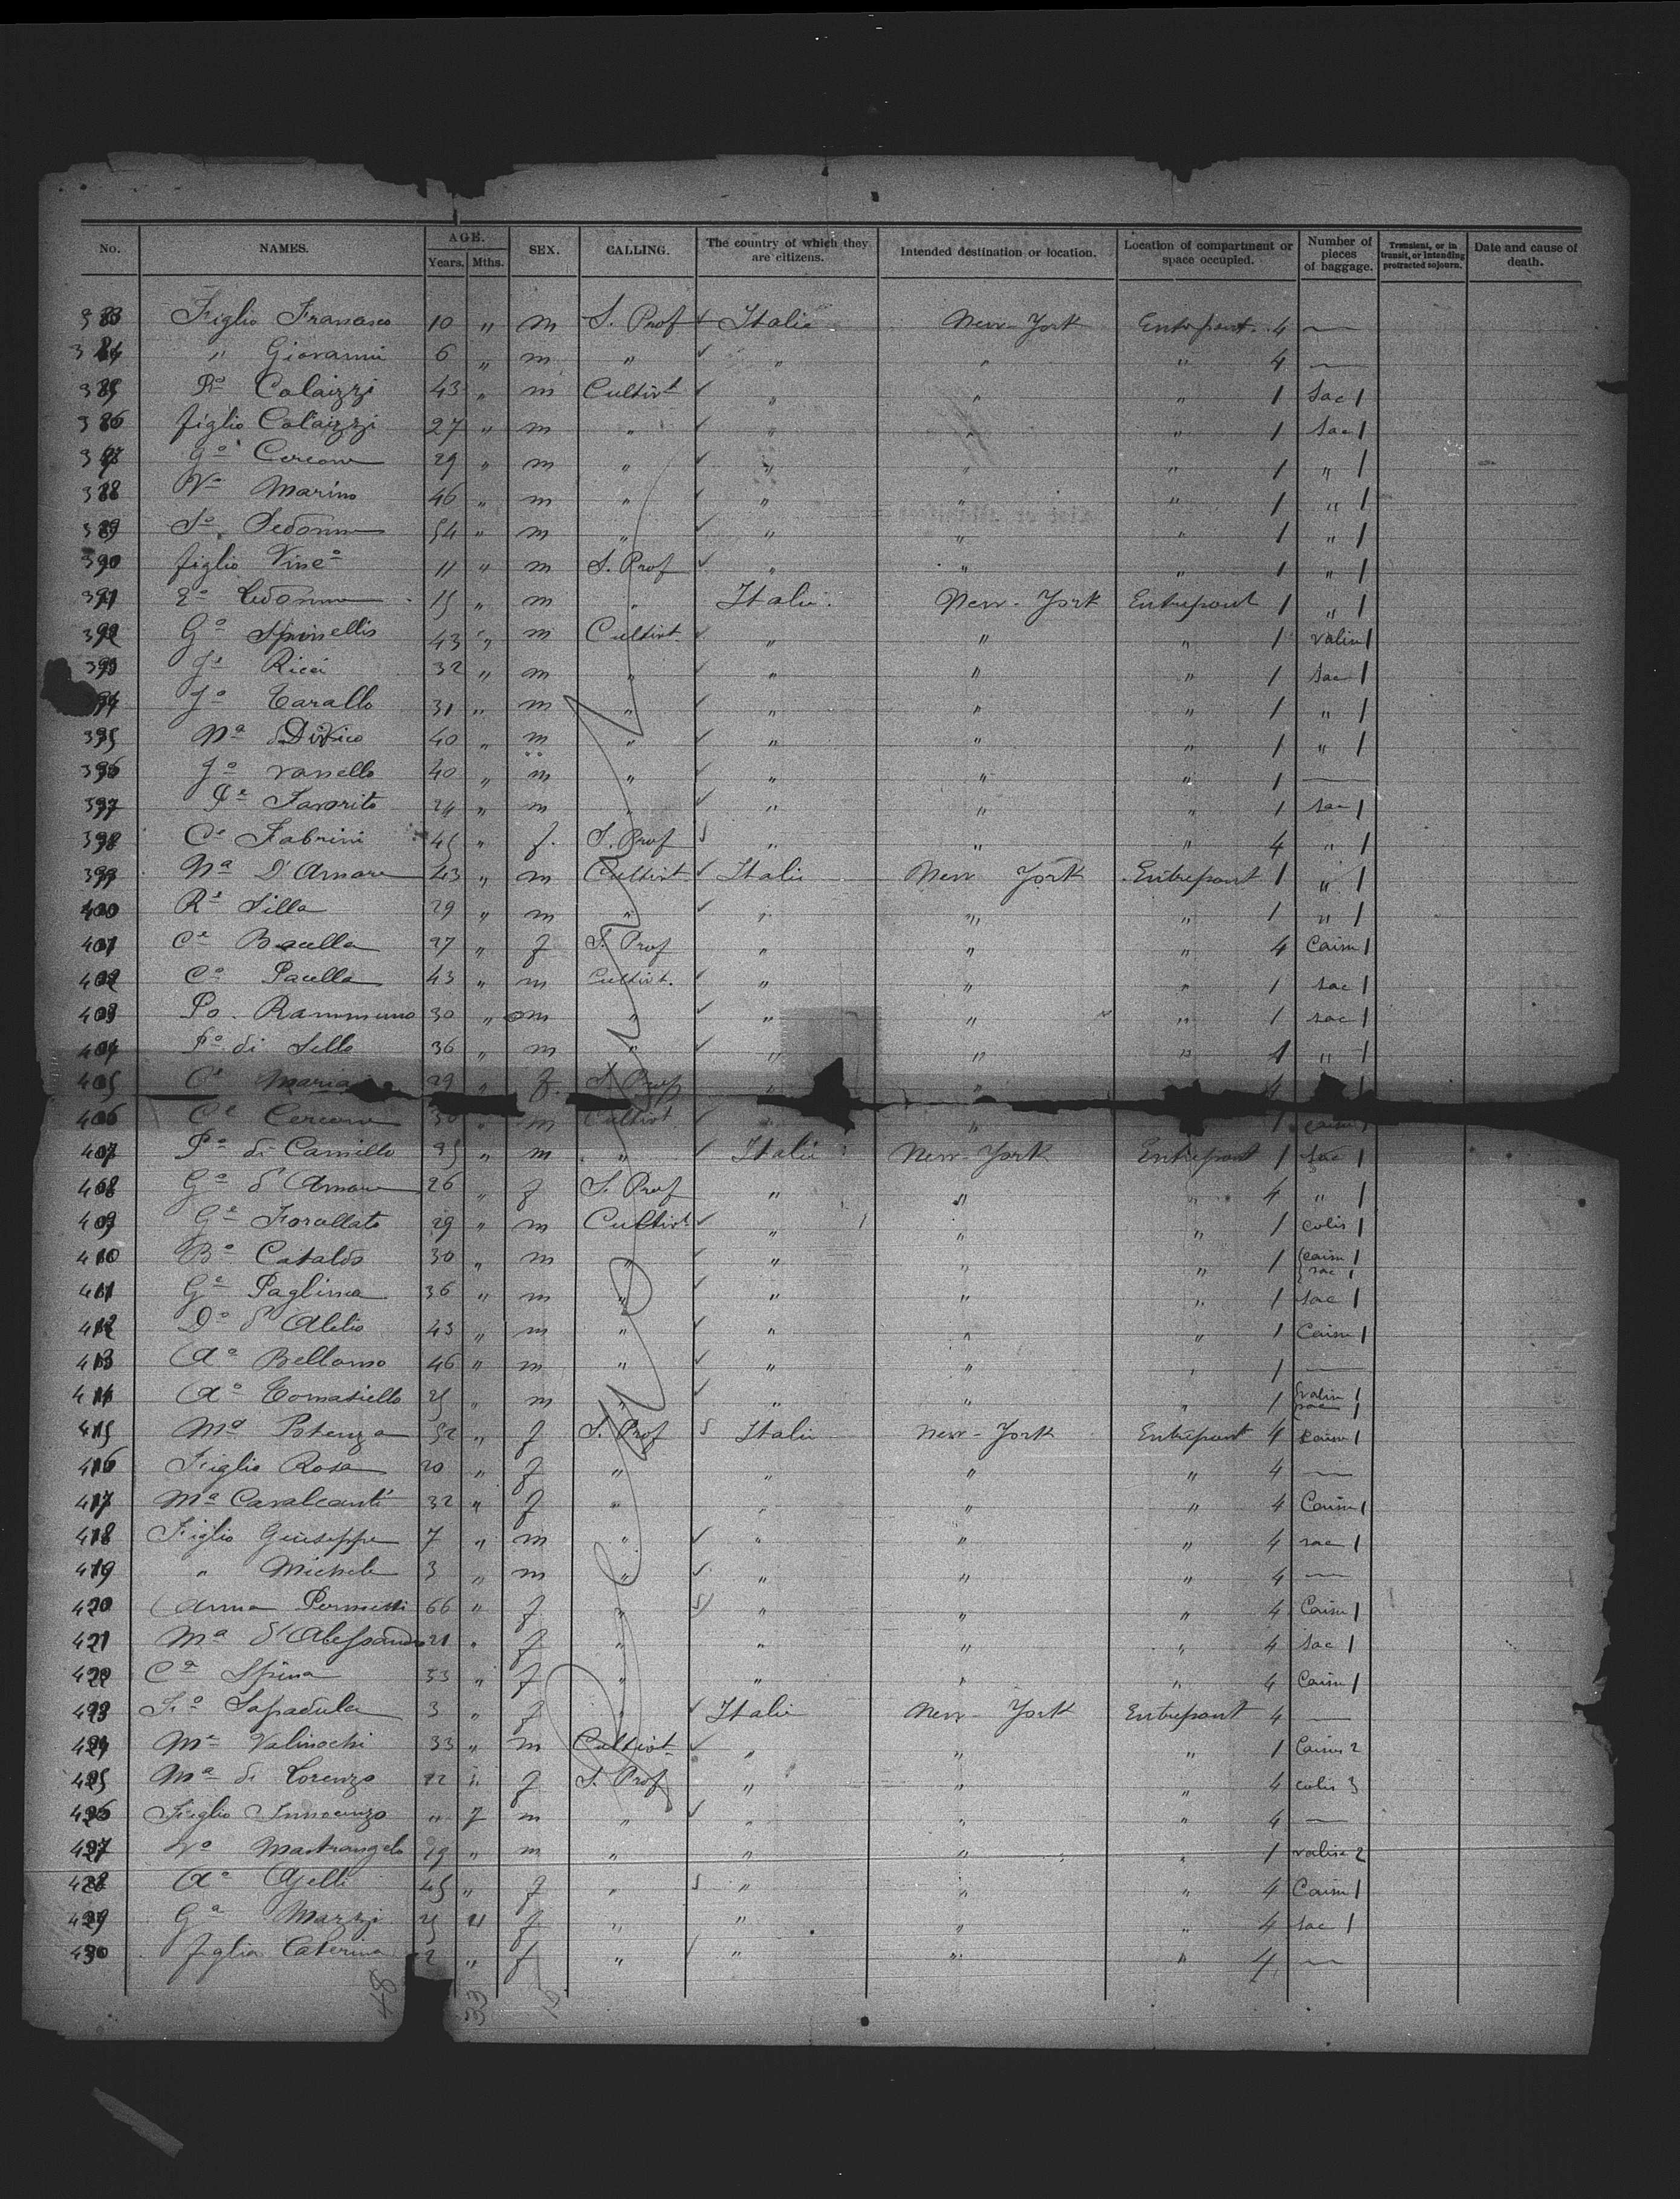 No. NAMES. AGE. Years. Mths. SEX. CALLING. The country of which they are citizens. Intended destination or location. Location of compartment or space occupied. Number of pieces of baggage. Transient, or in transit, or intending protracted sojourn. Date and cause of death.
383 Figlio Francesco 10 " m S. Prof Italie New-York Entrepont. 4 —
384 " Giovanni 6 " m " " " " 4 —
385 Ro Colaizzi 43 " m Cultivt " " " 1 Sac 1
386 figlio Colaizzi 27 " m " " " " 1 Sac 1
387 Go Cercone 29 " m " " " " 1 " 1
388 Marino 46 " m " " " " 1 " 1
389 So 54 " m " " " " 1 " 1
390 figlio Vinco 11 " m S. Prof " " " 1 " 1
391 15 " m " Italie New-York Entrepont 1 " 1
392 Go Spinellis 43 " m Cultivt " " " 1 valise 1
393 Ricci 32 " m " " " " 1 Sac 1
394 Tarallo 31 " m " " " " 1 " 1
395 Na 40 " m " " " " 1 " 1
396 vanello 40 " m " " " " 1 —
397 Favorito 24 " m " " " " 1 sac 1
398 Ce Fabrini 45 " f. S. Prof " " " 4 " 1
399 Na D'Amore 43 " m Cultivt Italie New York Entrepont 1 " 1
400 Silla 29 " m " " " " 1 " 1
401 Ce Bacella 27 " f S. Prof " " " 4 Caisse 1
402 Co Pacella 43 " m Cultivt. " " " 1 sac 1
403 Po. Rammuno 30 " m " " " " 1 sac 1
404 Po di Lello 36 " m " " " " 1 " 1
405 Maria 29 " f. S. Prof " " 4 1
406 Ce Cercone 30 " m Cultivt " 1 caisse 1
407 Po di Camillo 35 " m " Italie New-York Entrepont 1 sac 1
408 Ga d'Amore 26 " f S. Prof " " " 4 " 1
409 Ge Forallato 29 " m Cultivt " " " 1 colis 1
410 Bo Cataldo 30 " m " " " " 1 caisse 1 sac 1
411 Ge Paglina 36 " m " " " " 1 sac 1
412 Do 43 " m " " " " 1 Caisse 1
413 Ao Bellomo 46 " m " " " " 1 —
414 Ao Tomasiello 25 " m " " " " 1 valise 1 1
415 Ma Potenza 52 " f S. Prof Italie New-York Entrepont 4 caisse 1
416 Figlio Rosa 20 " f " " " " 4 —
417 Ma Cavalcanti 32 " f " " " " 4 Caisse 1
418 Figlio Giuseppe 7 " m " " " " 4 sac 1
419 " Michele 3 " m " " " " 4 —
420 Anna 66 " f " " " " 4 Caisse 1
421 Ma d'Alessandro 21 " f " " " " 4 sac 1
422 Ca Spina 33 " f " " " " 4 Caisse 1
423 Lapadula 3 " f " Italie New-York Entrepont 4 —
424 Valinochi 33 " m Cultivt " " " 1 Caisses 2
425 Ma di Lorenzo 22 " f S. Prof " " " 4 colis 3
426 Figlio Innocenzo " 7 m " " " " 4 —
427 Vo Mastrangelo 29 " m " " " " 1 valise 2
428 Aa Ajelli 45 " f " " " " 4 Caisse 1
429 Ga Mazzi 25 11 f " " " " 4 sac 1
430 figlia Caterina 2 " f " " " " 4 —
48 33